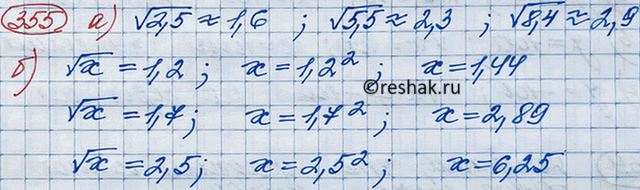 355 а) √2,5 ≈ 1,6 ; √5,5 ≈ 2,3 ; √8,4 ≈ 2,9
б) √x = 1,2 ; x = 1,2² ; x = 1,44
©reshak.ru
√x = 1,7 ; x = 1,7² ; x = 2,89
√x = 2,5 ; x = 2,5² ; x = 6,25